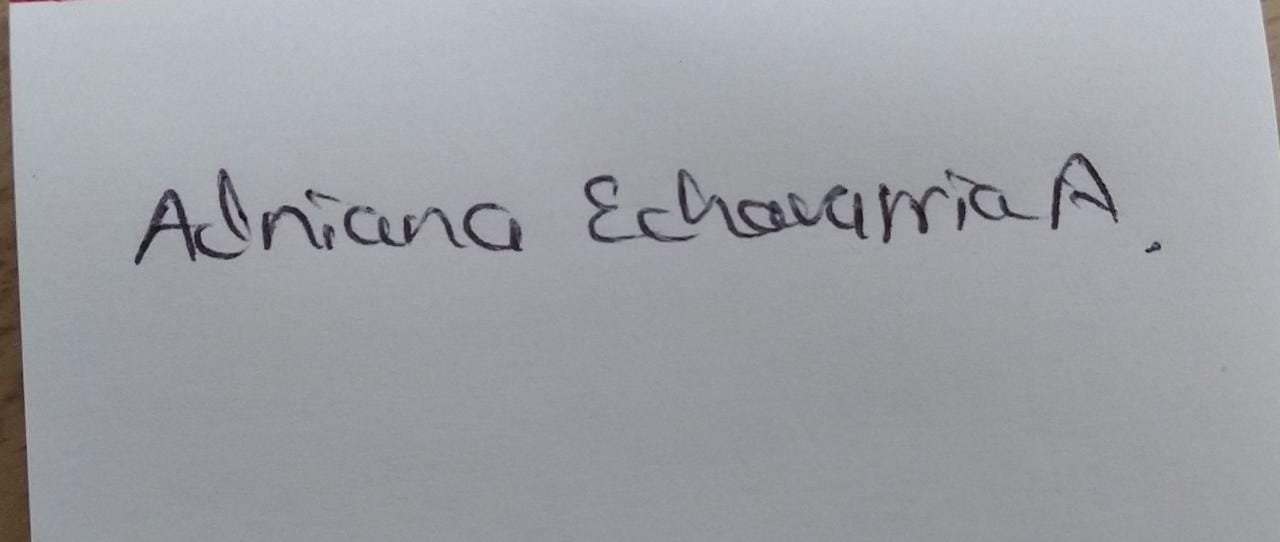 Adriana Echavarria A.